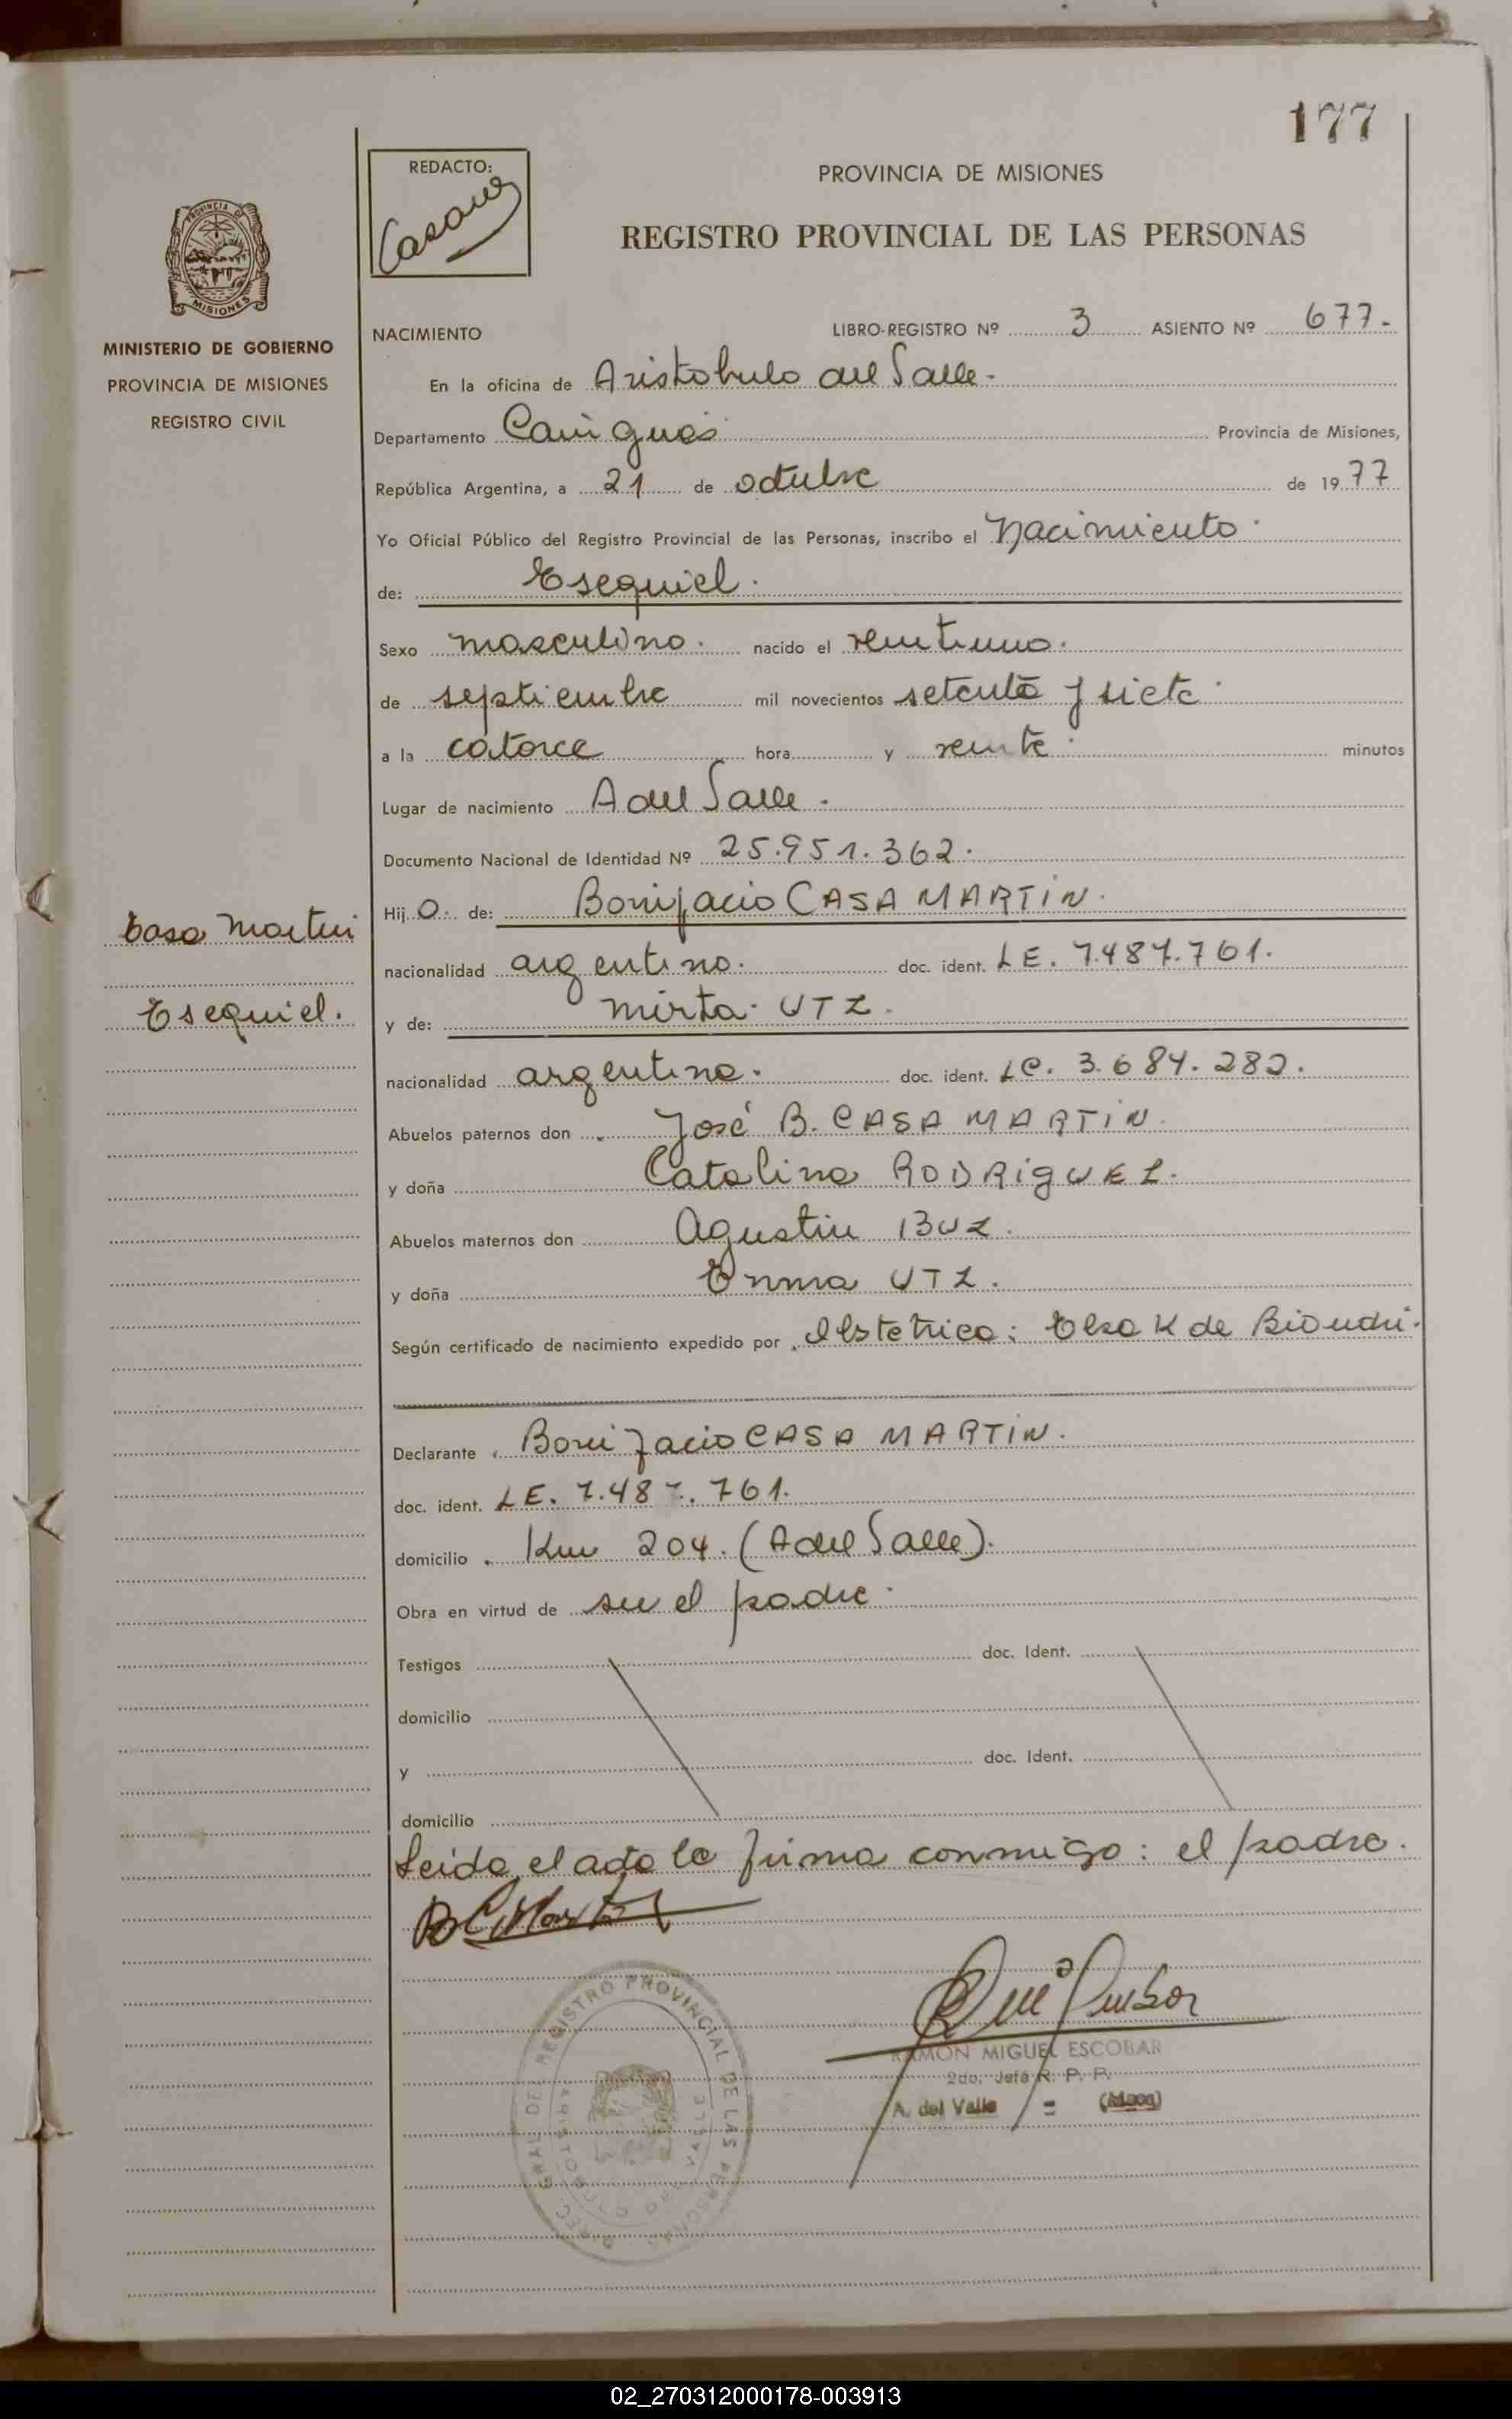 177
REDACTO:
Casany
PROVINCIA DE MISIONES
REGISTRO PROVINCIAL DE LAS PERSONAS
PROVINCIA DE MISIONES
MINISTERIO DE GOBIERNO
PROVINCIA DE MISIONES
REGISTRO CIVIL
Casa Martin
Esequiel.
NACIMIENTO LIBRO-REGISTRO Nº 3 ASIENTO Nº 677.-
En la oficina de Aristobulo del Valle.-
Departamento Cainguás Provincia de Misiones,
República Argentina, a 21 de octubre de 1977
Yo Oficial Público del Registro Provincial de las Personas, inscribo el Nacimiento.
de: Esequiel.
Sexo masculino. nacido el veintiuno.
de septiembre mil novecientos setenta y siete.
a la catorce hora y veinte. minutos
Lugar de nacimiento A del Valle.
Documento Nacional de Identidad Nº 25.951.362.
Hij o. de: Bonifacio CASA MARTIN.
nacionalidad argentino. doc. ident. LE. 7.487.761.
y de: Mirta UTZ.
nacionalidad argentina. doc. ident. LC. 3.684.282.
Abuelos paternos don José B. CASA MARTIN.
y doña Catalina RODRIGUEZ.
Abuelos maternos don Agustin BUZ.
y doña Emma UTZ.
Según certificado de nacimiento expedido por Obstetrica: Elsa K de Biondri.
Declarante Bonifacio CASA MARTIN.
doc. ident. LE. 7.487.761.
domicilio Km 204. (A del Valle).
Obra en virtud de ser el padre.
Testigos doc. Ident.
domicilio
y doc. Ident.
domicilio
Leida el acta la firma conmigo: el padre.
RAMON MIGUEL ESCOBAR
2do. Jefe R. P. P.
A. del Valle = (Mnes)
DIREC. GRAL. DEL REGISTRO PROVINCIAL DE LAS PERSONAS
ARISTOBULO DEL VALLE
02_270312000178-003913